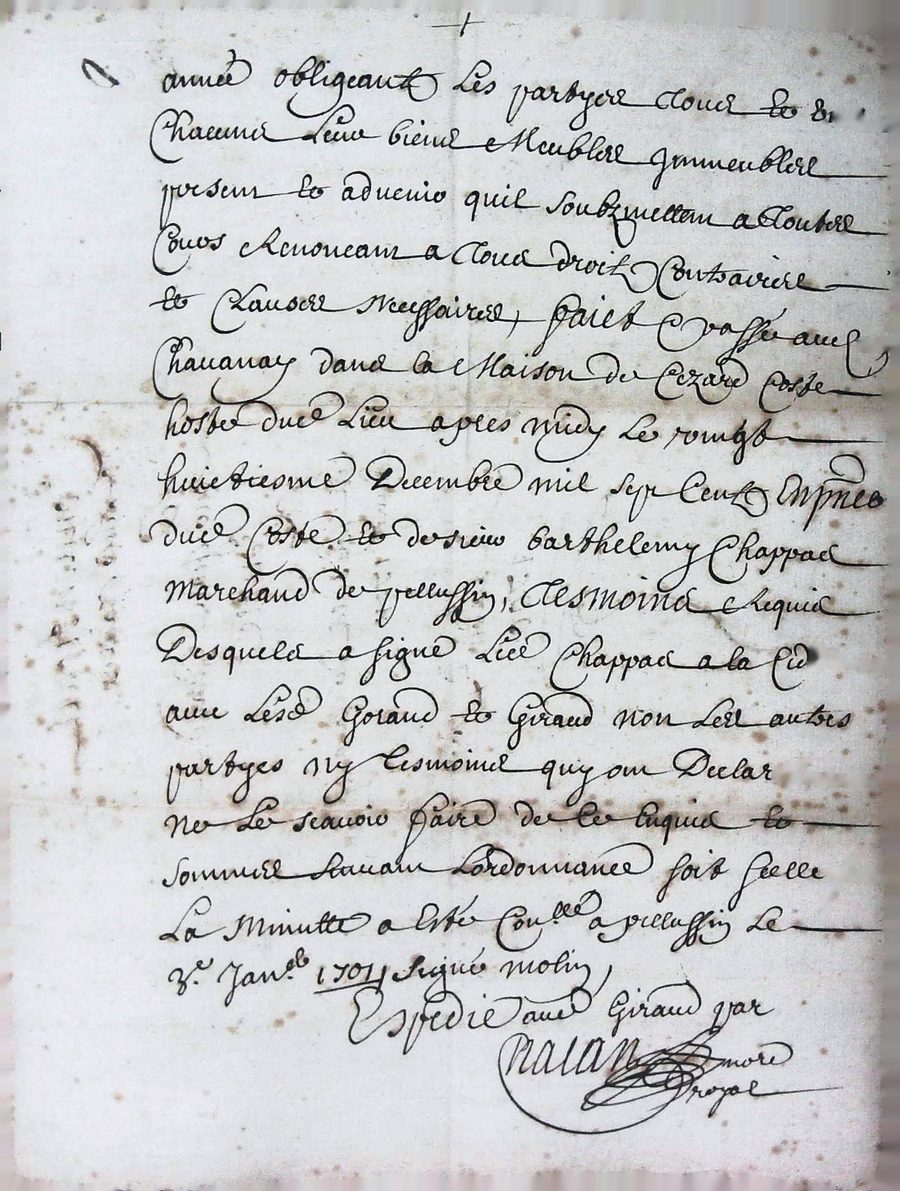 année obligeantz Les partyes tous et en
Chacune Leur biens Meubles Immeubles
present et advenir quil soubzmettan a toutes
Cours Renoncant a tous droitz Contraires
et Clauses Necessaires, faict & passé aud
Chavanay dans la Maison de Cezard Coste
hoste dud Lieu apres midy Le vingt
huictiesme Decembre mil sept Centz En pnce
dud Coste et de sieur barthelemy Chappas
Marchand de pellussin, tesmoins Requis
Desquels a signé Led Chappas a la Ced
avec Lesd Gorand et Giraud non Les autres
partyes ny tesmoins quy on Declar
ne Le scavoir faire de ce Enquis et
sommes suivant Lordonnance soit scelle
La Minutte a Esté Conllé a pellussin Le
3e Janer 1701 signé molin,
Expedie aud Giraud par
nore
royal